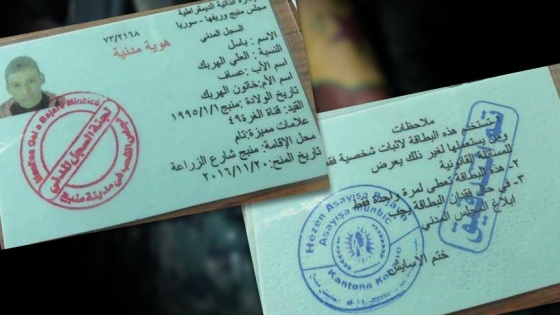 الإدارة الذاتية الديمقراطية
مجلس منبج وريفها - سوريا
السجل المدني
٧٣/٢١٦٨
هوية مدنية
الاسم : باسل
النسبة : العلي الهربك
اسم الأب: عساف
اسم الأم: خاتون الهربك
تاريخ الولادة :منبج ١٩٩٥/١/١
القيد: قناة الغرة ٤٩
علامات مميزة: تام
محل الإقامة: منبج شارع الزراعة
تاريخ المنح: ٢٠١٦/١١/٢٠
لجنة السجل المدني
في مدينة منبج
ملاحظات
تستخدم هذه البطاقة لاثبات شخصية فقط
ومن يستعملها لغير ذلك يعرض
للمسائلة القانونية
٢- هذه البطاقة تعطى لمرة واحدة فقط
٣- في حال فقدان البطاقة يجب
ابلاغ المجلس المدني
ختم الاسايش
Hezen Asayîşa
Asayişa Munbic
Kantona